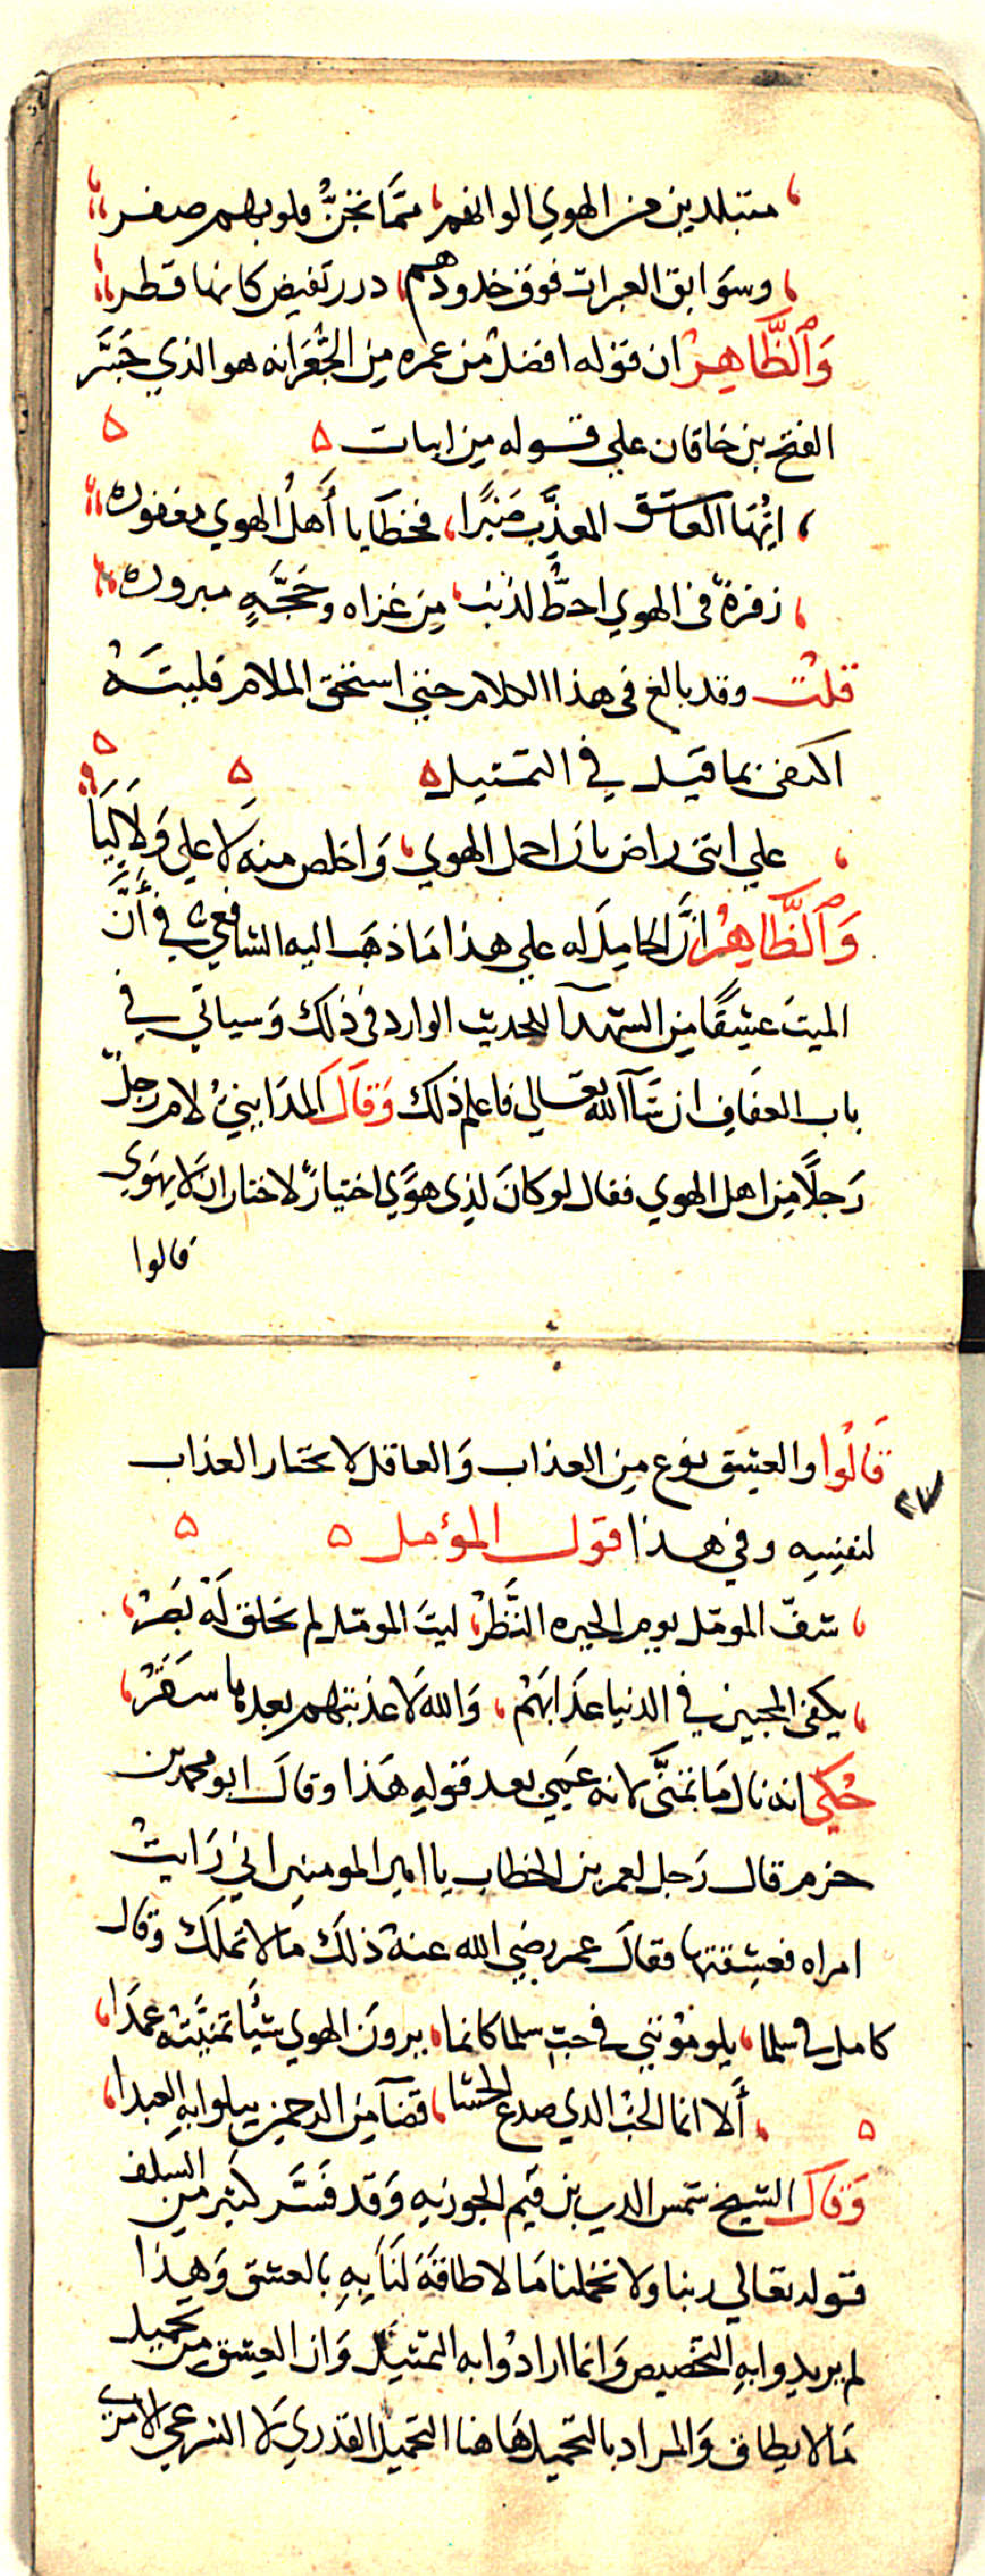 متبلدين من الهوي الوانهم، مما تجن قلوبهم صفر
وسوابق العبرات فوق خدودهم، درر تفيض كانها قطر
وَالظَّاهِرْ ان قوله افضل من عمره من الجُعرانه هو الذي جَسَّر
الفتح بن خاقان علي قوله من ابيات ه ه
ايُّها العاشق المعذَّب صَبْرًا، فخطَايا أهلُ الهوي مغفوره
زفرة في الهوي احطُّ لذنب، من غزاه وحَجَّةٍ مبروره
قلت وقد بالغ في هذا الكلام حتي استحق الملام فليتَهُ
اكتفى بما قيل في التمثيل ه ه ه
علي انني راض بان احمل الهوي، وَاخلص منه لا علي وَلَا لِيَا
وَالظَّاهِرُ انَّ الحامِلَ له علي هذا مَا ذهَب اليه الشافعي في أنَّ
الميتَ عشِقًا من الشهدآ للحديث الوارد في ذلك وَسياتي في
باب العفَافِ ان شَآ الله تعَالي فاعلم ذلك وَقَالَ المدَاينيْ لام رجلٌ
رَجلًا من اهل الهوي فقال لو كانَ لِذِي هوًي اختيارٌ لاختار ان لا يهوي
قالوا
قَالُوا والعِشق نوع من العذاب وَالعاقل لا يختار العذاب
٢٧
لنفسِهِ وفي هذا قول المؤمل ه ه
شفّ المومّل يوم الحيره النَّظَرُ، ليتَ المومّل لم يخلق لَهُ بَصَرُ
يكفي المحبين في الدنيا عَذَابَهُم، وَالله لَا عذبتهم بعدها سَقَرُ
حُكي انه نال مَا تمنَّى لانه عَمِيَ بعد قوله هَذا وقالَ ابو محمد بن
حزم قال رَجل لعمر بن الخطاب يا امير المومنين اني رَايتُ
امراه فعشِقتها فقالَ عمر رضي الله عنهُ ذلكَ مَا لا تملكَ وقال
كامل في سلما، يلومُونني في حبّ سلما كانما، يرونَ الهوي شيًا تمنَّيتُه عمدَا
أَلا انما الحُبّ الذي صدع الحشا، قضآ من الرحمن يبلوا به العبدا، ه
وَقَالَ الشيخ شمس الدين بن قَيّم الجوزيه وَقد فَسَّر كثير من السلف
قوله تعَالي ربنا ولا تحملنا مَا لا طاقَةَ لَنَا بِهِ بالعشق وَهذا
لم يريدوا بهِ التخصيص وَانما ارادُوا به التمثيل وَان العشق من تحميل
مَا لا يطاق وَالمراد بالتحميل هَاهنا التحميل القدري لَا الشرعي الامري